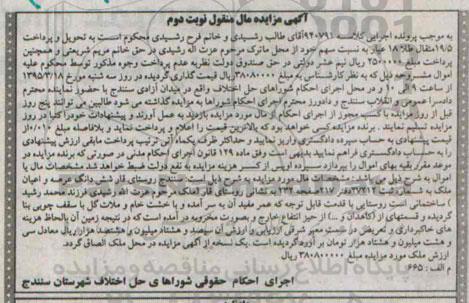 آگهی مزایده مال منقول نوبت دوم
به موجب پرونده اجرایی کلاسه ۹۴۰۷۹۱ آقای طالب رشیدی و خانم فرح رشیدی محکوم است به تحویل و پرداخت
۱۹/۵ مثقال طلا ۱۸ عیار به نسبت سهم خود از محل ماترک مرحوم عزت اله رشیدی در حق خانم مریم شریعتی و همچنین
پرداخت مبلغ ۲۵۰۰۰۰۰ ریال نیم عشر دولتی در حق صندوق دولت نظریه عدم پرداخت وجوه مذکور توسط محکوم علیه
اموال مشروحه ذیل که به نظر کارشناسی به مبلغ ۳۸۰۸۰۰۰۰۰ ریال قیمت گذاری گردیده در روز سه شنبه مورخ ۱۳۹۵/۳/۱۸
از ساعت ۹ الی ۱۰ و در محل اجرای احکام شوراهای حل اختلاف واقع در میدان آزادی سنندج با حضور نماینده محترم
دادسرا عمومی و انقلاب سنندج و دادورز محترم اجرای احکام شوراها به مزایده گذاشته می شود طالبین می توانند پنج روز
قبل از روز مزایده با کسب مجوز از اجرای احکام از مال مورد مزایده بازدید به عمل آورند و پیشنهادات خود را کتبا در روز
مزایده تسلیم نمایند . برنده مزایده کسی خواهد بود که بالاترین قیمت را اعلام و پرداخت نماید و بلافاصله مبلغ ۱۰/۰ از
قیمت پیشنهادی به حساب سپرده دادگستری واریز نمایید و حداکثر ظرف یکماه این ترتیب پرداخت مابقی ارزش پیشنهادی
را به حساب دادگستری اقدام نمایید بدیهی است وفق ماده ۱۲۹ قانون اجرای احکام مدنی در صورتی که برنده مزایده در
موعد مقرر بقیه بهای اموال را نپردازد سپرده او پس از کسر هزینه مزایده به نفع دولت ضبط خواهد شد. مشخصات مال یا
اموال به شرح ذیل می باشد: مشخصات مال مورد مزایده به شرح ذیل است: سنندج روستای قار شش دانگ عرصه و اعیان
ملک به شماره ثبت ۳۷۲۱۲ دفتر ۲۱۷ صفحه ۲۳۲ به نشانی روستای قار (ملک مرحوم عزت الله رشیدی فرزند محمد رشید
) ساختمانی است روستایی با قدمت قابل توجه که عمر مفید آن به سر آمده و با خشت خام و ملات گل با سقف چوبی بنا
گردیده و قسمتهای از (کاهدان و ...) از حیز انتفاع خارج و بصورت مخروبه در آمده است که در نتیجه زمین آن بالحاظ هزینه
های خاکبرداری و تعریض در سمت معبر شرقی ارزیابی و ارزش آن سیصد و هشتاد میلیون و هشتصد هزار ریال معادل سی
و هشت میلیون و هشتاد هزار تومان برآورد گردیده است. یک نسخه از آگهی مزایده در محل ملک الصاق گردد.
ارزش ملک مورد مزایده مبلغ ۳۸۰۸۰۰۰۰۰ ریال
م الف : ۶۶۵
اجرای احکام حقوقی شوراهای حل اختلاف شهرستان سنندج
پایگاه اطلاع رسانی مناقصه و مزایده